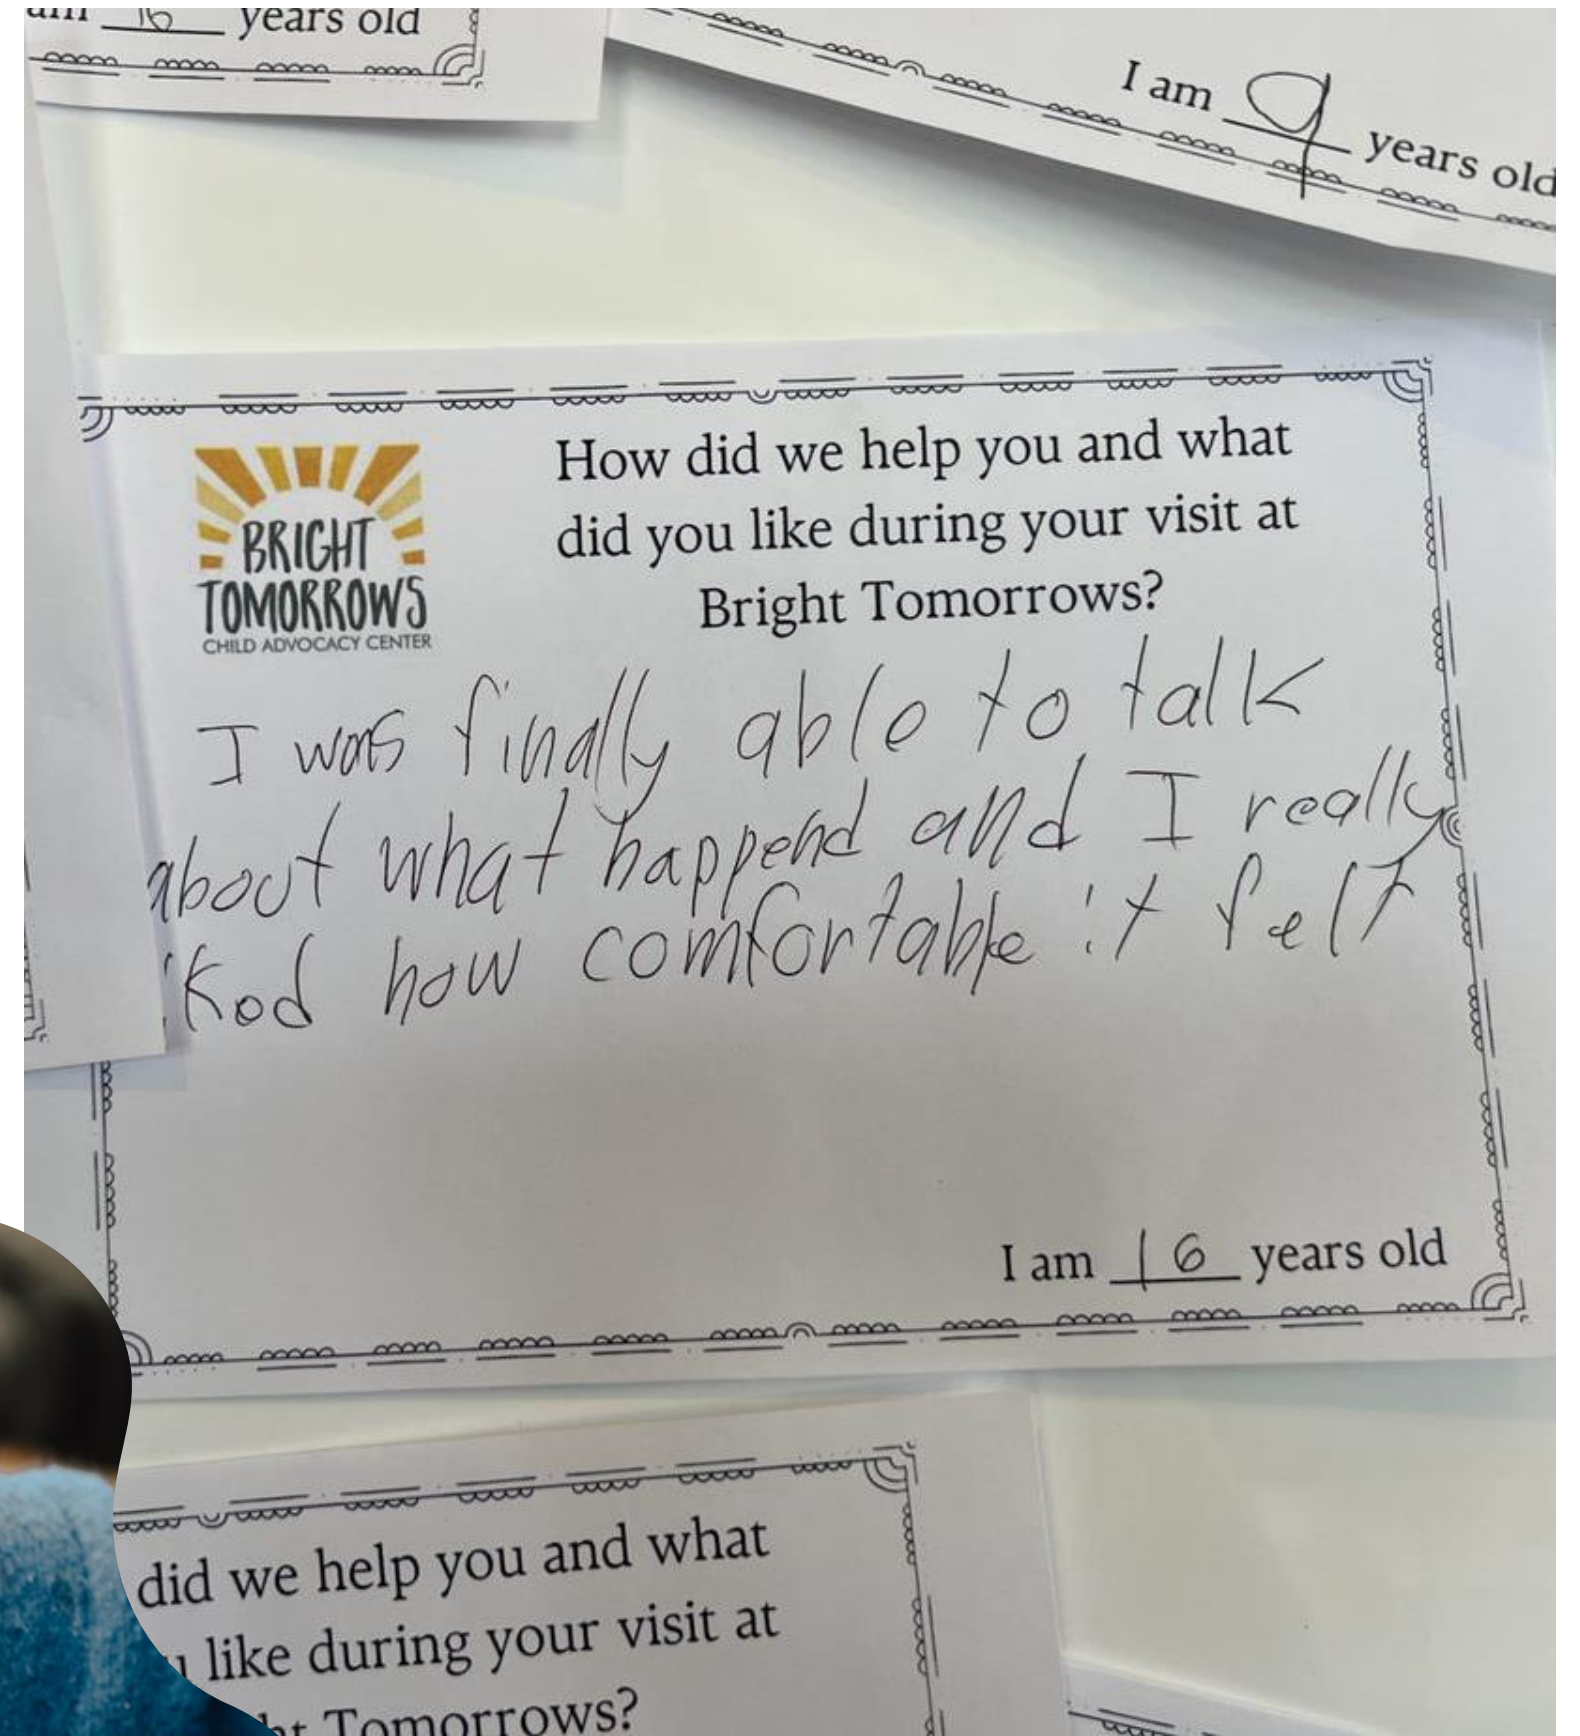 am 16 years old
I am 9 years old
BRIGHT
TOMORROWS
CHILD ADVOCACY CENTER
How did we help you and what
did you like during your visit at
Bright Tomorrows?
I was finally able to talk
about what happend and I really
iked how comfortable it felt
I am 16 years old
did we help you and what
u like during your visit at
ht Tomorrows?